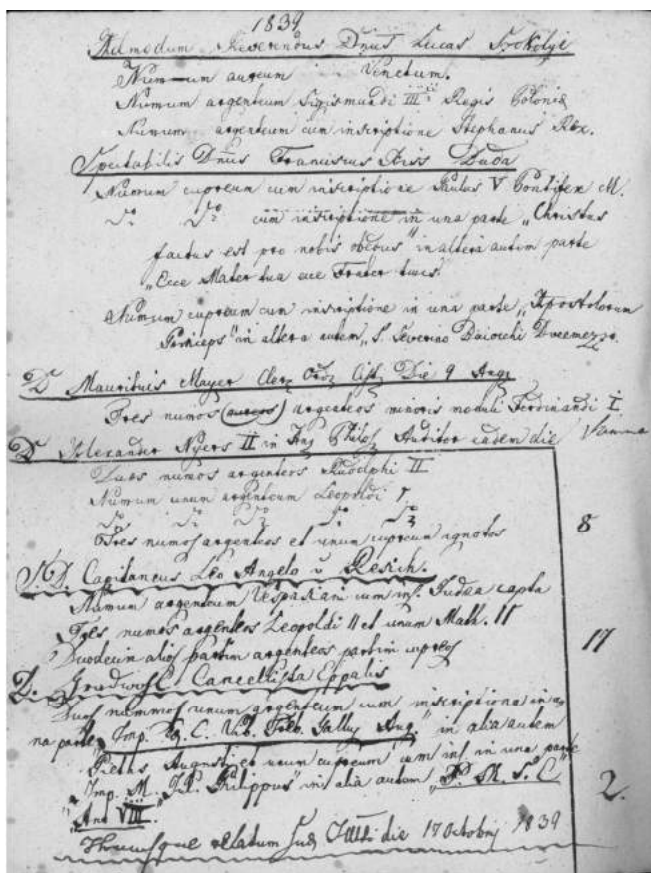 1839
Admodum Reverendus Dnus Lucas
Numum aureum Venetum.
Numum argenteum Sigismundi III Regis Poloniae
Numum argenteum cum inscriptione Stephanus Rex.
Spectabilis Dnus Franciscus Kiss Buda
Numum cupreum cum inscriptione Paulus V Pontifex M.
do do cum inscriptione in una parte „Christus
factus est pro nobis obediens" in altera autem parte
„Ecce Mater tua ecce Frater tuus"
Numum cupreum cum inscriptione in una parte „Apostolorum
Princeps" in altera autem „S. Severino
D Mauritius Mayer Cler Ord Cist Die 9 Aug
Tres numos (aureos) argenteos minoris moduli Ferdinandi I
D Alexander Nyers II in Philos Auditor eadem die
Duos numos argenteos Rudolphi II
Numum unum argenteum Leopoldi I
Tres numos argenteos et unum cupreum ignotos 8
S. D. Capitaneus Leo Angelo v Resich.
Numum argenteum Vespasiani cum ins. Judea capta
Tres numos argenteos Leopoldi II et unum Math. II
Duodecim alios partim argenteos partim cupreos 17
D. Cancellista Eppalis
Duos nummos unum argenteum cum inscriptiona in u-
na parte „Imp. C. C. Vib. Treb. Gallus Aug." in alia autem
Augusti, et unum cupreum cum ins in una parte
„Imp. M. Jul. Philippus" in alia autem „P. M. S. C" 2.
„An VIII."
Hucusque relatum die 17 Octobris 1839